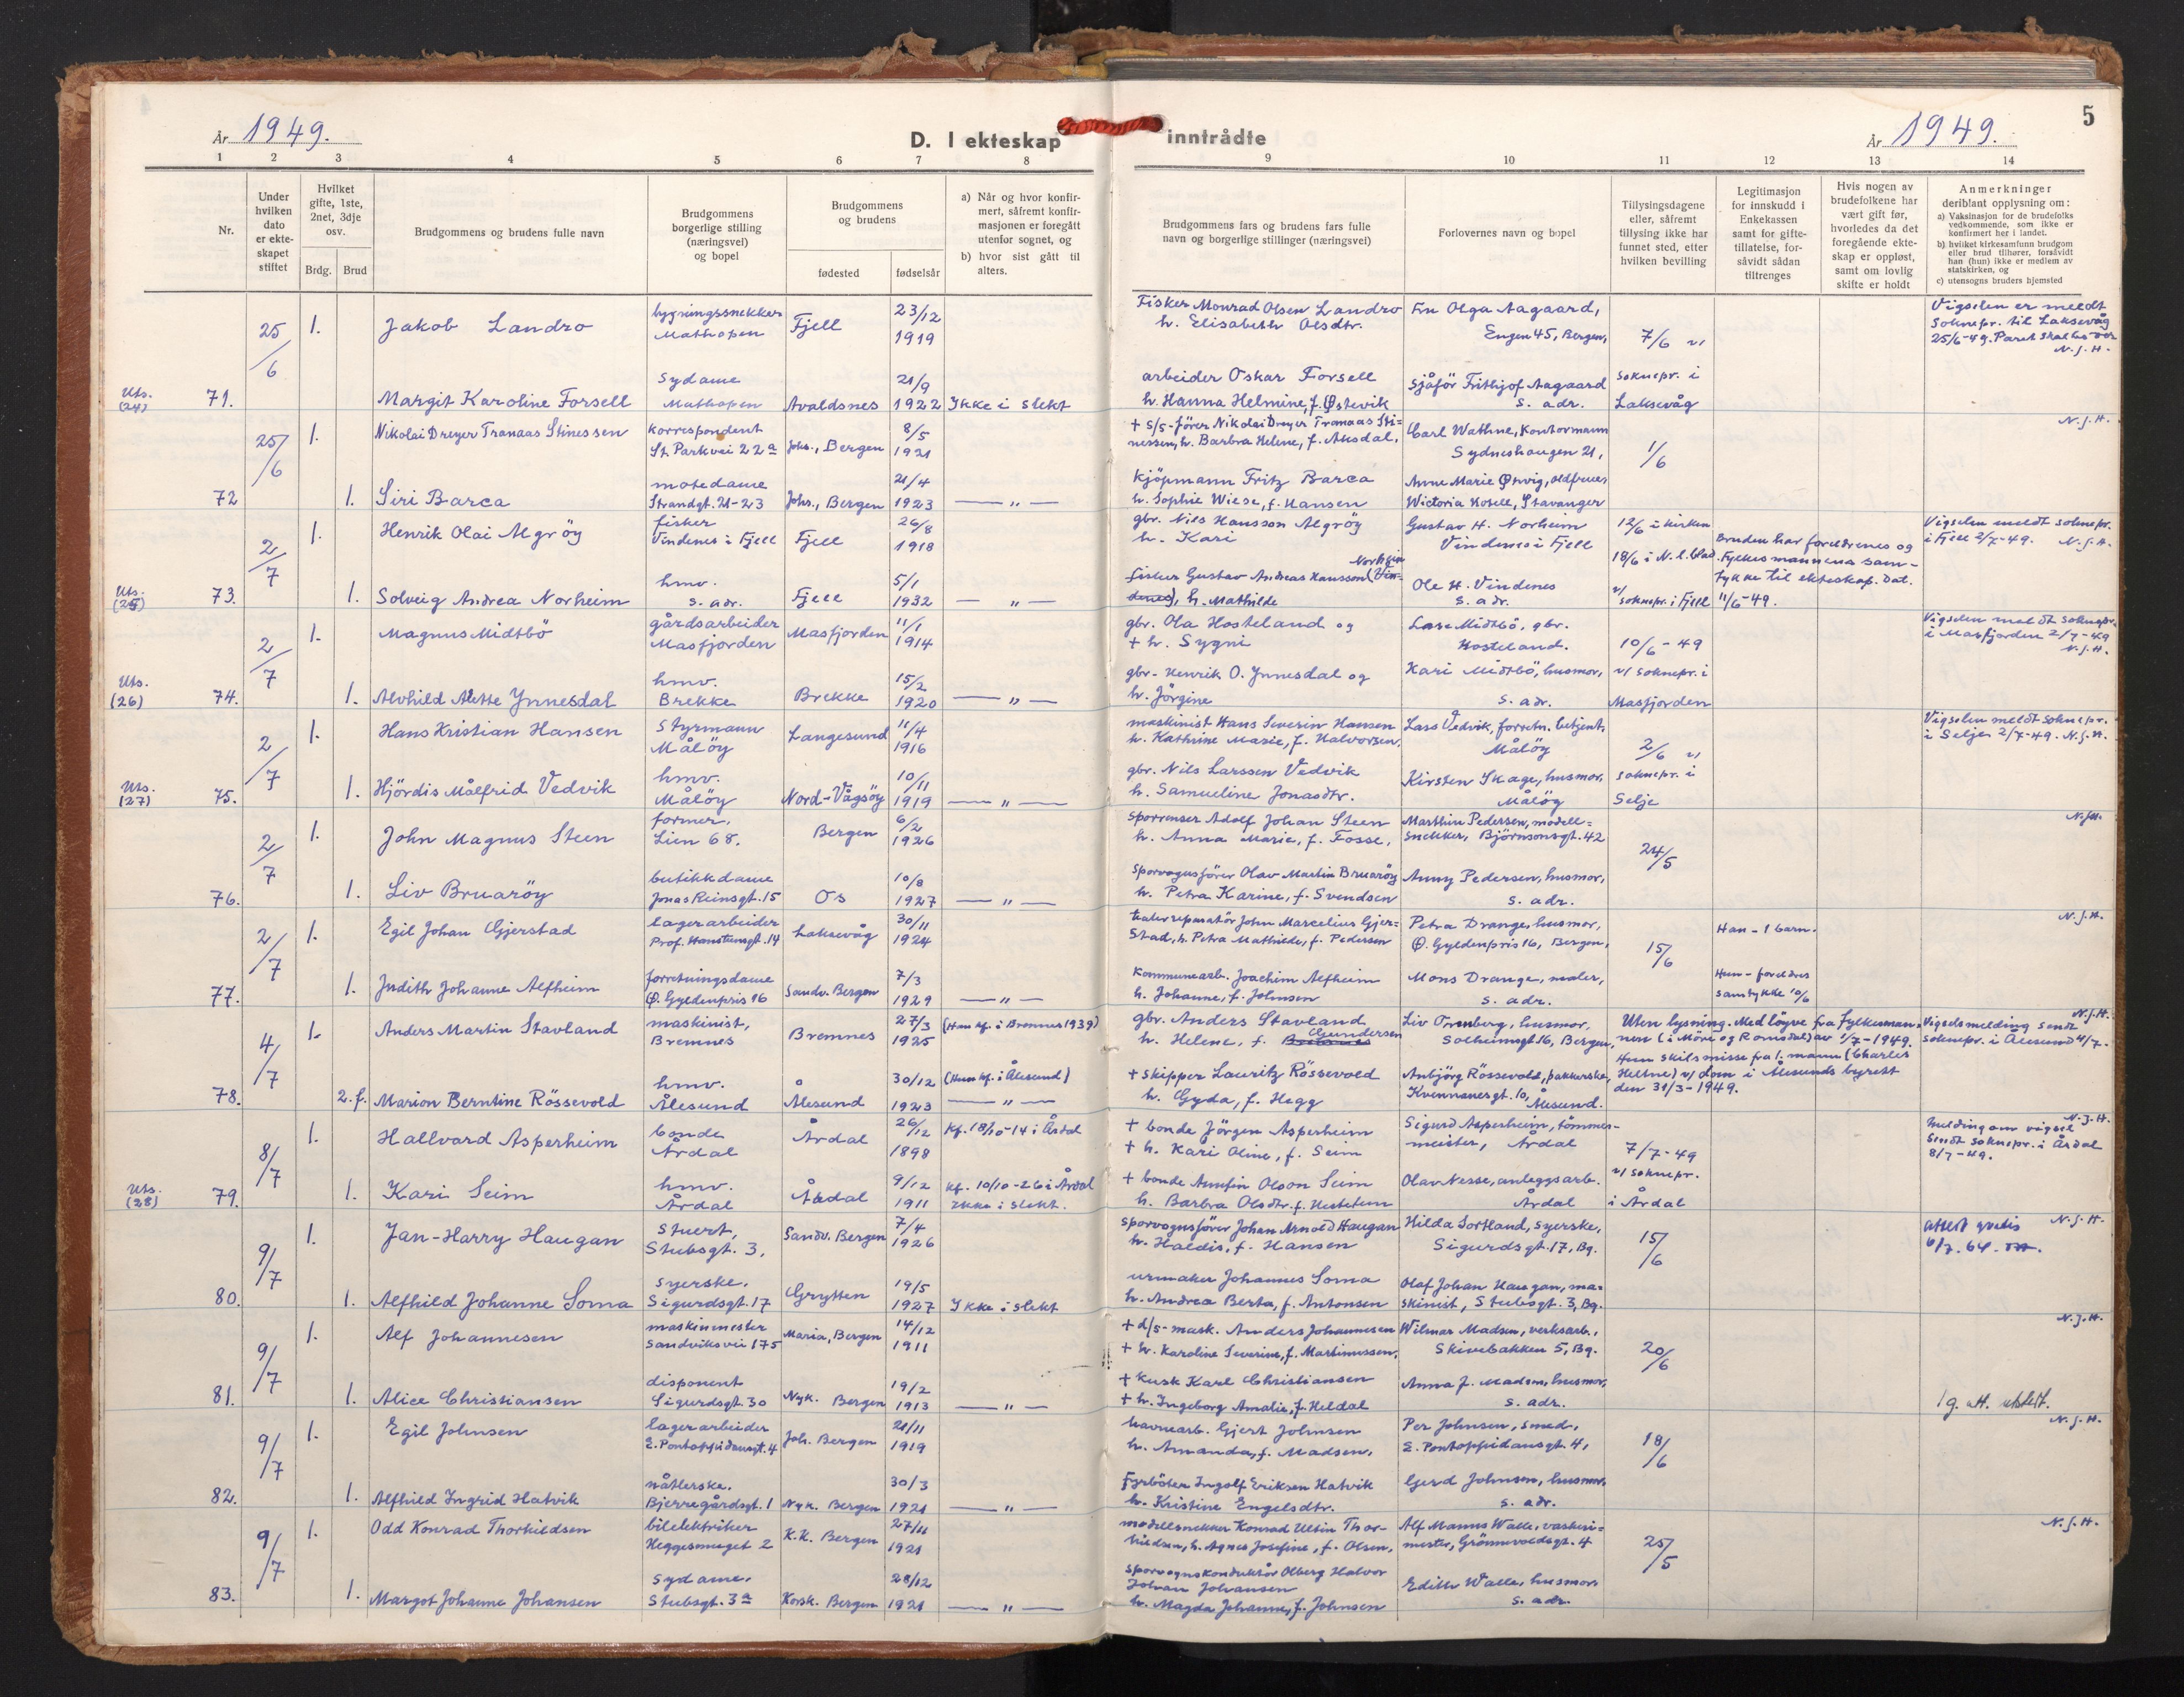 År 1949.
D. I ekteskap inntrådte
År 1949.
5
1 2 3 4 5 6 7 8 9 10 11 12 13 14
Nr.
Under hvilken dato er ekteskapet stiftet
Hvilket gifte, 1ste, 2net, 3dje osv.
Brdg. Brud
Brudgommens og brudens fulle navn
Brudgommens borgerlige stilling (næringsvei) og bopel
Brudgommens og brudens
fødested fødselsår
a) Når og hvor konfirmert, såfremt konfirmasjonen er foregått utenfor sognet, og
b) hvor sist gått til alters.
Brudgommens fars og brudens fars fulle navn og borgerlige stillinger (næringsvei)
Forlovernes navn og bopel
Tillysingsdagene eller, såfremt tillysing ikke har funnet sted, efter hvilken bevilling
Legitimasjon for innskudd i Enkekassen samt for giftetillatelse, forsåvidt sådan tiltrenges
Hvis nogen av brudefolkene har vært gift før, hvorledes da det foregående ekteskap er oppløst, samt om lovlig skifte er holdt
Anmerkninger deriblant opplysning om:
a) Vaksinasjon for de brudefolks vedkommende, som ikke er konfirmert her i landet.
b) hvilket kirkesamfunn brudgom eller brud tilhører, forsåvidt han (hun) ikke er medlem av statskirken, og
c) utensogns bruders hjemsted
25/6 1. Jakob Landro bygningssnekker Mathopen Fjell 23/12 1919 Fisker Monrad Olsen Landro h. Elisabeth Olsdtr. Fru Olga Aagaard, Engen 45, Bergen, 7/6 v/ Vigselen er meldt soknepr. til Laksevåg 25/6-49. N.J.H.
Uts. (24) 71. Margit Karoline Forsell sydame Mathopen Avaldsnes 21/9 1922 Ikke i slekt arbeider Oskar Forsell h. Hanna Helmine, f. Østevik sjåför Frithjof Aagaard s. adr. soknepr. i Laksevåg
25/6 1. Nikolai Dreyer Tranaas Stinessen korrespondent St. Parkvei 22a Johs., Bergen 8/5 1921 + s/s-förer Nikolai Dreyer Tranaas Stinessen, h. Barbra Helene, f. Aksdal, Carl Wathne, kontormann Sydneshaugen 21, 1/6 N.J.H.
72 1. Siri Barca motedame Strandgt. 21-23 Johs., Bergen 21/4 1923 — " — kjöpmann Fritz Barca h. Sophie Wiese, f. Hansen Anne Marie Wictoria Kosell, Stavanger
2/7 1. Henrik Olai Algröy fisker Vindenes i Fjell Fjell 26/8 1918 gbr. Nils Hansson Algröy h. Kari Gustav H. Norheim Vindenes i Fjell 12/6 i kirken 18/6 i N.l. blad. Bruden har foreldrenes og fylkesmannens samtykke til ekteskap. dat. 11/6-49. Vigselen meldt soknepr. i Fjell 2/7-49. N.J.H.
Uts. (25) 73. 1. Solveig Andrea Norheim hmv. s. adr. Fjell 5/1 1932 — " — fisker Gustav Andreas Hansson Norheim (Vindenes), h. Mathilde Ole H. Vindenes s. adr. v/ soknepr. i Fjell
2/7 1. Magnus Midtbö gårdsarbeider Masfjorden Masfjorden 11/1 1914 gbr. Ola Hosteland og + h. Sygni Lasse Midtbö, gbr. Hosteland. 10/6-49 Vigselen meldt soknepr. i Masfjorden 2/7-49 N.J.H.
Uts. (26) 74. 1. Alvhild Alette Ynnesdal hmv. Brekke Brekke 15/2 1920 — " — gbr. Henrik O. Ynnesdal og h. Jörgine Kari Midtbö, husmor, s. adr. v/ soknepr. i Masfjorden
2/7 1. Hans Kristian Hansen Styrmann Målöy Langesund 11/4 1916 maskinist Hans Severin Hansen h. Kathrine Marie, f. Halvorsen, Lars Vedvik, forretn. betjent, Målöy 2/6 v/ Vigselen meldt soknepr. i Selje 2/7-49. N.J.H.
Uts. (27) 75. 1. Hjördis Målfrid Vedvik hmv. Målöy Nord-Vågsöy 10/11 1919 — " — gbr. Nils Larssen Vedvik h. Samueline Jonasdtr. Kirsten Skage, husmor, Målöy soknepr. i Selje
2/7 1. John Magnus Steen former, Lien 68. Bergen 6/2 1926 sporrenser Adolf Johan Steen h. Anna Marie, f. Fosse, Marthin Pedersen, modellsnekker, Björnsonsgt. 42 24/5 N.J.H.
76. 1. Liv Bruaröy butikkdame Jonas Reinsgt. 15 Os 10/8 1927 — " — sporvognsförer Olav Martin Bruaröy h. Petra Karine, f. Svendsen Anny Pedersen, husmor, s. adr.
2/7 1. Egil Johan Gjerstad lagerarbeider Prof. Hanstensgt. 14 Laksevåg 30/11 1924 John Marcelius Gjerstad, h. Petra Mathilde, f. Pedersen Petra Drange, husmor, Ø. Gyldenpris 16, Bergen, 15/6 Han - 1 barn. N.J.H.
77. 1. Judith Johanne Alfheim forretningsdame Ø. Gyldenpris 16 Sandv. Bergen 7/3 1929 — " — Kommunearb. Joachim Alfheim h. Johanne, f. Johnsen Mons Drange, maler, s. adr. Hun - foreldres samtykke 10/6
4/7 1. Anders Martin Stavland maskinist, Bremnes Bremnes 27/3 1925 (Han kf. i Bremnes 1939) gbr. Anders Stavland h. Helene, f. Gundersen Liv Trenberg, husmor, Solheimsgt. 16, Bergen, Uten lysning. Med löyve fra fylkesmannen (i Möre og Romsdal) av 1/7-1949. Vigselsmelding sendt soknepr. i Ålesund 4/7. N.J.H.
78. 2. f. Marion Berntine Rössevold hmv. Ålesund Ålesund 30/12 1923 (Hun kf. i Ålesund) — " — + skipper Lauritz Rössevold h. Gyda, f. Hegg Anbjörg Rössevold, pakkerske, Kvennanesgt. 10, Ålesund. Hun skilsmisse fra 1. mann (Charles Heltne) v/ dom i Ålesunds byrett den 31/3-1949.
8/7 1. Hallvard Asperheim bonde Årdal Årdal 26/12 1898 Kf. 18/10-14 i Årdal + bonde Jörgen Asperheim + h. Kari Oline, f. Seim Sigurd Asperheim, tömmermeister, Årdal 7/7-49 Melding om vigsel sendt soknepr. i Årdal 8/7-49. N.J.H.
Uts. (28) 79. 1. Kari Seim hmv. Årdal Årdal 9/12 1911 Kf. 10/10-26 i Årdal Ikke i slekt. + bonde Annfin Olson Seim h. Barbra Olsdtr. f. Hestetun Olav Nesse, anleggsarb. Årdal v/ soknepr. i Årdal
9/7 1. Jan-Harry Haugan Stuert, Stubsgt. 3, Sandv. Bergen 7/4 1926 sporvognsförer Johan Arnold Haugan h. Haldis, f. Hansen Hilda Sortland, syerske, Sigurdsgt. 17, Bg. 15/6 attest gratis 6/7.64. N.J.H.
80. 1. Alfhild Johanne Soma syerske. Sigurdsgt. 17 Grytten 19/5 1927 Ikke i slekt urmaker Johannes Soma h. Andrea Berta, f. Antonsen Olaf Johan Haugan, maskinist, Stubsgt. 3, Bg.
9/7 1. Alf Johannesen maskinmester Sandviksvei 175 Maria, Bergen 14/12 1911 + d/s-mask. Anders Johannesen + h. Karoline Severine, f. Martinussen, Wilmar Madsen, verksarb., Skivebakken 5, Bg. 20/6 N.J.H.
81. 1. Alice Christiansen disponent Sigurdsgt. 30 Nyk. Bergen 19/2 1913 — " — + kusk Karl Christiansen + h. Ingeborg Amalie, f. Heldal Anna J. Madsen, husmor, s. adr. 1 g. att. utstedt.
9/7 1. Egil Johnsen lagerarbeider E. Pontoppidansgt. 4 Joh. Bergen 21/11 1919 havnearb. Gjert Johnsen h. Amanda, f. Madsen, Per Johnsen, smed, E. Pontoppidansgt. 4, 18/6 N.J.H.
82. 1. Alfhild Ingrid Hatvik nåtlerske. Bjerregårdsgt. 1 Nyk. Bergen 30/3 1921 — " — Fyrböter Ingolf Eriksen Hatvik h. Kristine Engelsdtr. Gerd Johnsen, husmor, s. adr.
9/7 1. Odd Konrad Thorkildsen bilelektriker Heggesmuget 2 K.K. Bergen 27/11 1921 modellsnekker Konrad Thorkildsen, h. Agnes Josefine, f. Olsen, Alf Manns Walle, vaskerimester, Grönnevoldsgt. 4 25/5 N.J.H.
83. 1. Margot Johanne Johansen Sydame. Stubsgt. 3a Korsk. Bergen 28/12 1921 — " — sporvognskonduktör Olberg Halvor Johan Johansen h. Magda Johanne, f. Johnsen Edith Walle, husmor s. adr.